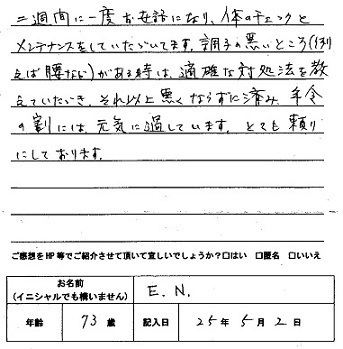 二週間に一度お世話になり、体のチェックと
メンテナンスをしていただいてます。調子の悪いところ(例
えば腰など)がある時は、適確な対処法を教
えていただき、それ以上悪くならずに済み、年令
の割には、元気に過しています。とても頼り
にしております。
ご感想をHP等でご紹介させて頂いて宜しいでしょうか?□はい □匿名 □いいえ
お名前 E.N.
(イニシャルでも構いません)
年齢 73 歳 記入日 25年 5月 2日